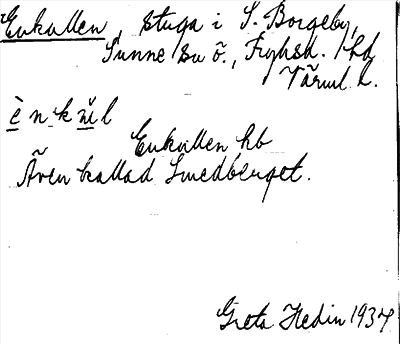 Enkullen, stuga i S. Borgeby,
Sunne sn ö., Fryksd. hd
Värml. l.
è n k ŭl l
Enkullen hb
Även kallad Smedberget.
Greta Hedin 1937